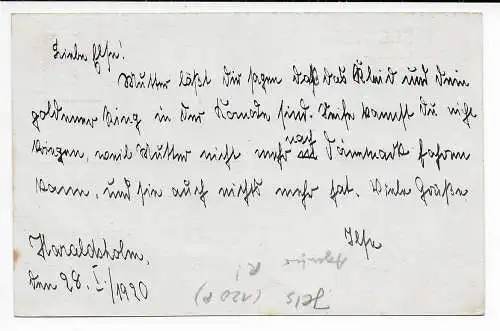 Liebe Else!
Mutter läßt Dir sagen daß das Kleid und dein
goldener Ring in der Komode sind. Seife kannst Du nicht
kriegen, weil Mutter nicht mehr nach Dänemark fahren
kann, und sie auch nichts mehr hat. Viele Grüße
Ilse
Haraldsholm,
den 28. I./1920
Jels (120 )